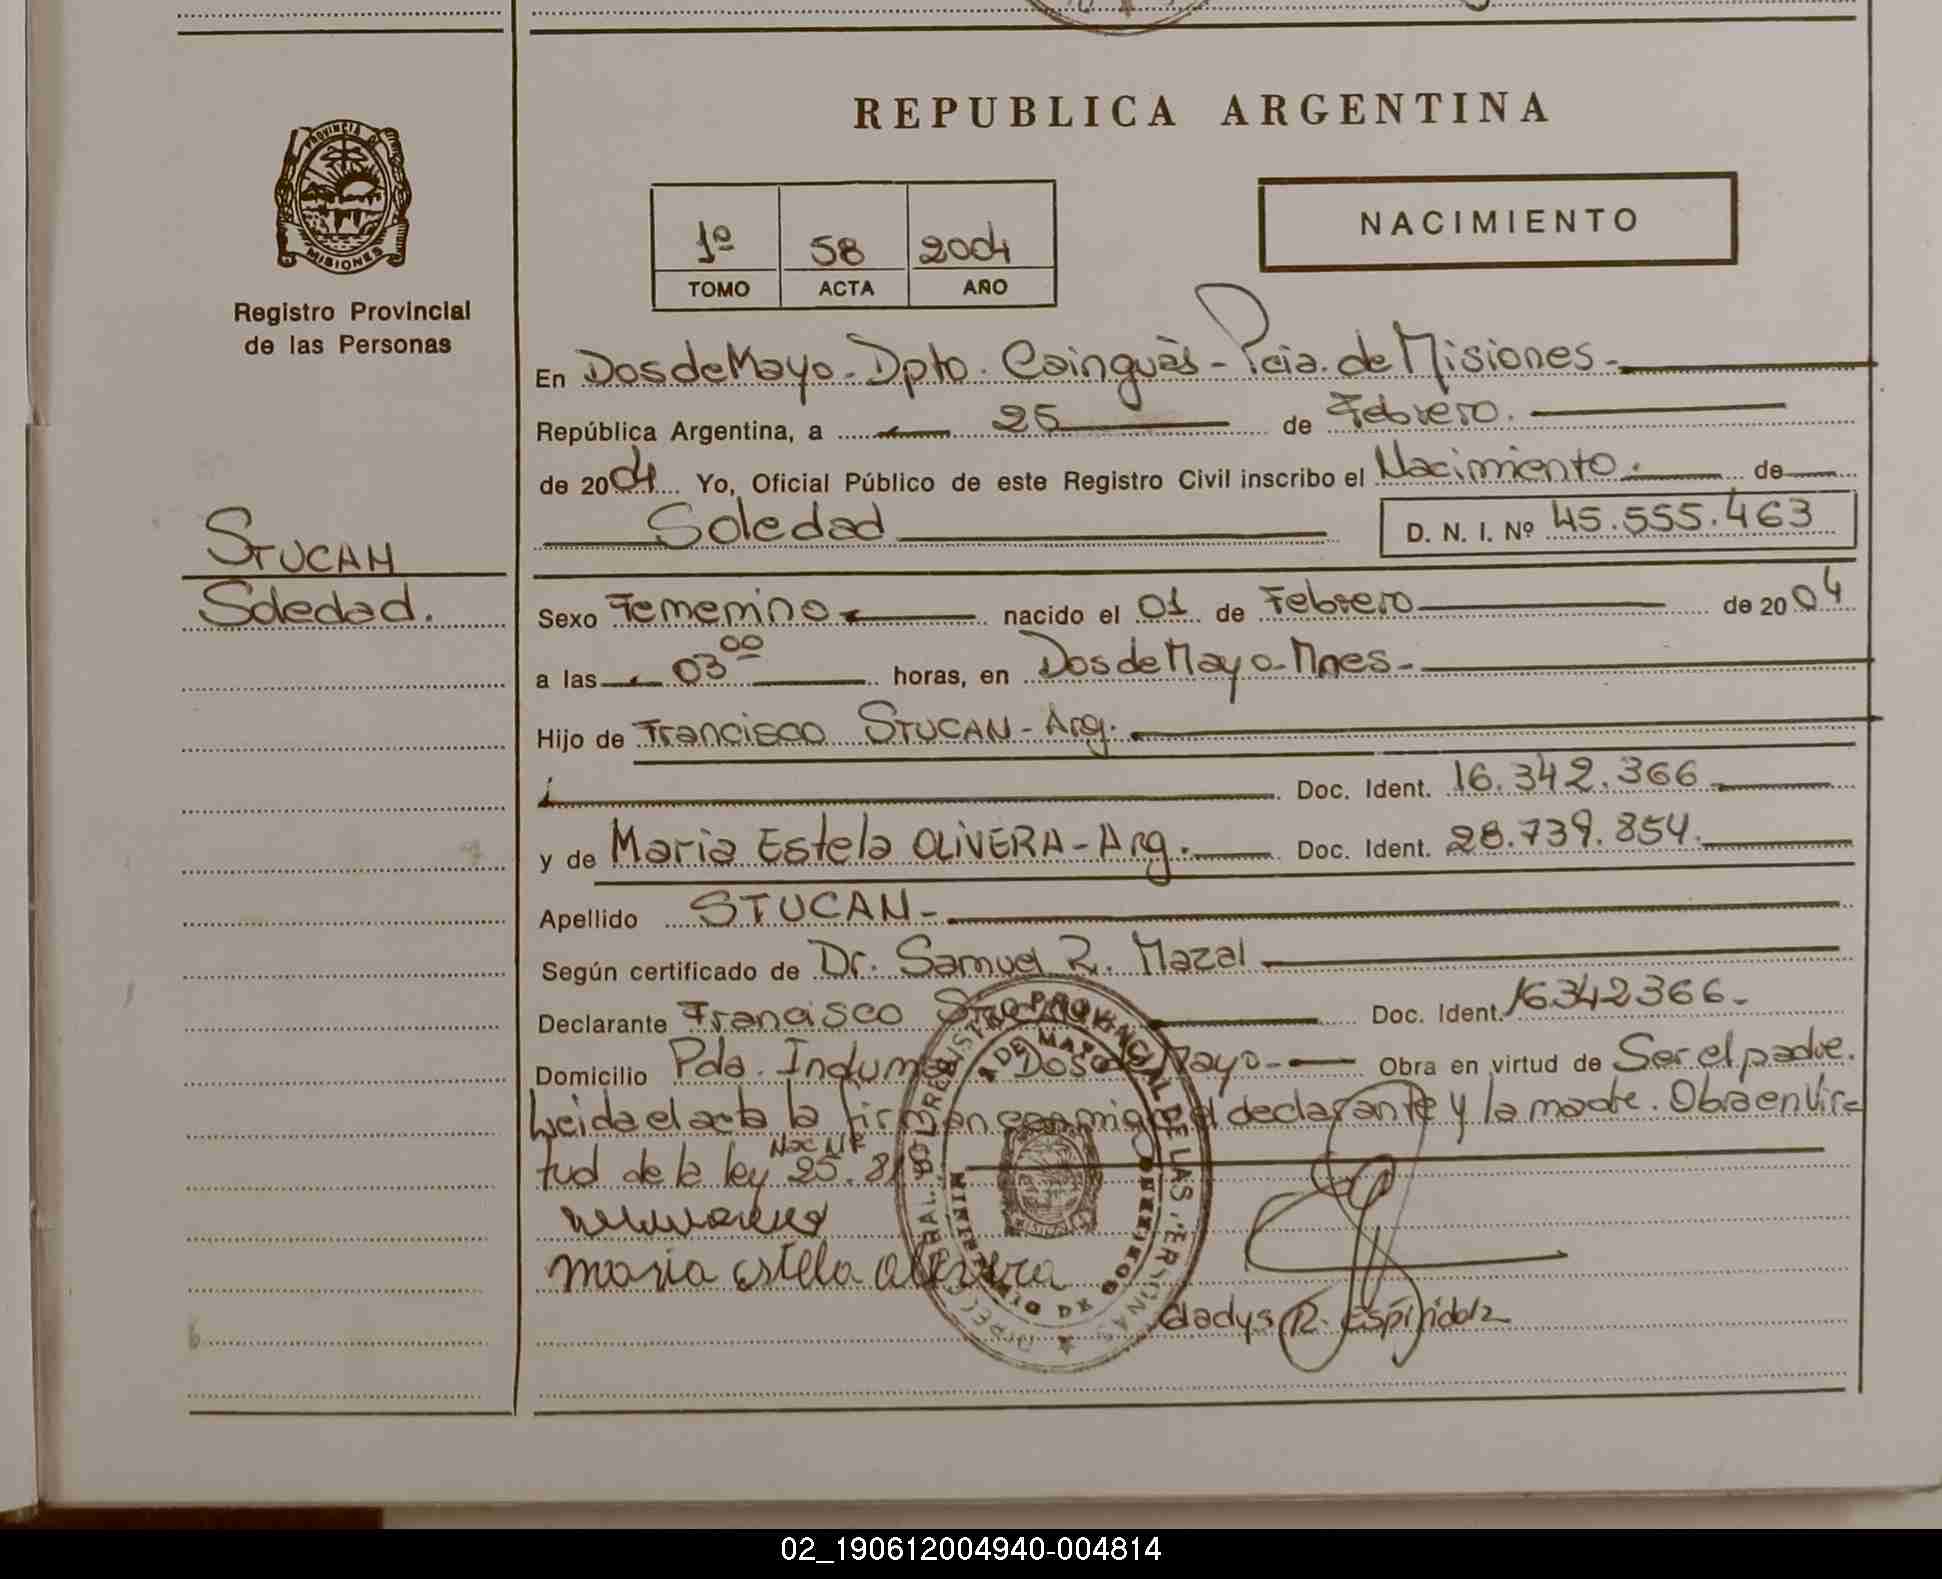 REPUBLICA ARGENTINA
PROVINCIA DE
MISIONES
Registro Provincial
de las Personas
1º 58 2004
TOMO ACTA AÑO
NACIMIENTO
En Dos de Mayo - Dpto. Cainguàs - Pcia. de Misiones -
República Argentina, a 25 de Febrero.
de 2004 Yo, Oficial Público de este Registro Civil inscribo el Nacimiento. de
Soledad D. N. I. Nº 45.555.463
STUCAN
Soledad.
Sexo Femenino nacido el 01 de Febrero de 2004
a las 03 00 horas, en Dos de Mayo - Mnes -
Hijo de Francisco STUCAN - Arg.
Doc. Ident. 16.342.366
y de Maria Estela OLIVERA - Arg. Doc. Ident. 28.739.854.
Apellido STUCAN -
Según certificado de Dr. Samuel R. Mazal
Declarante Francisco Doc. Ident. 16342366 -
Domicilio Pda. Indumar Dos de Mayo - Obra en virtud de Ser el padre.
Leida el acta la firman conmigo el declarante y la madre. Obra en Vir=
tud de la ley Nac Nº 25.81
maria estela olivera
Gladys R. Espindola
REGISTRO PROVINCIAL DE LAS PERSONAS
DE MAYO
MINISTERIO DE GOBIERNO
02_190612004940-004814